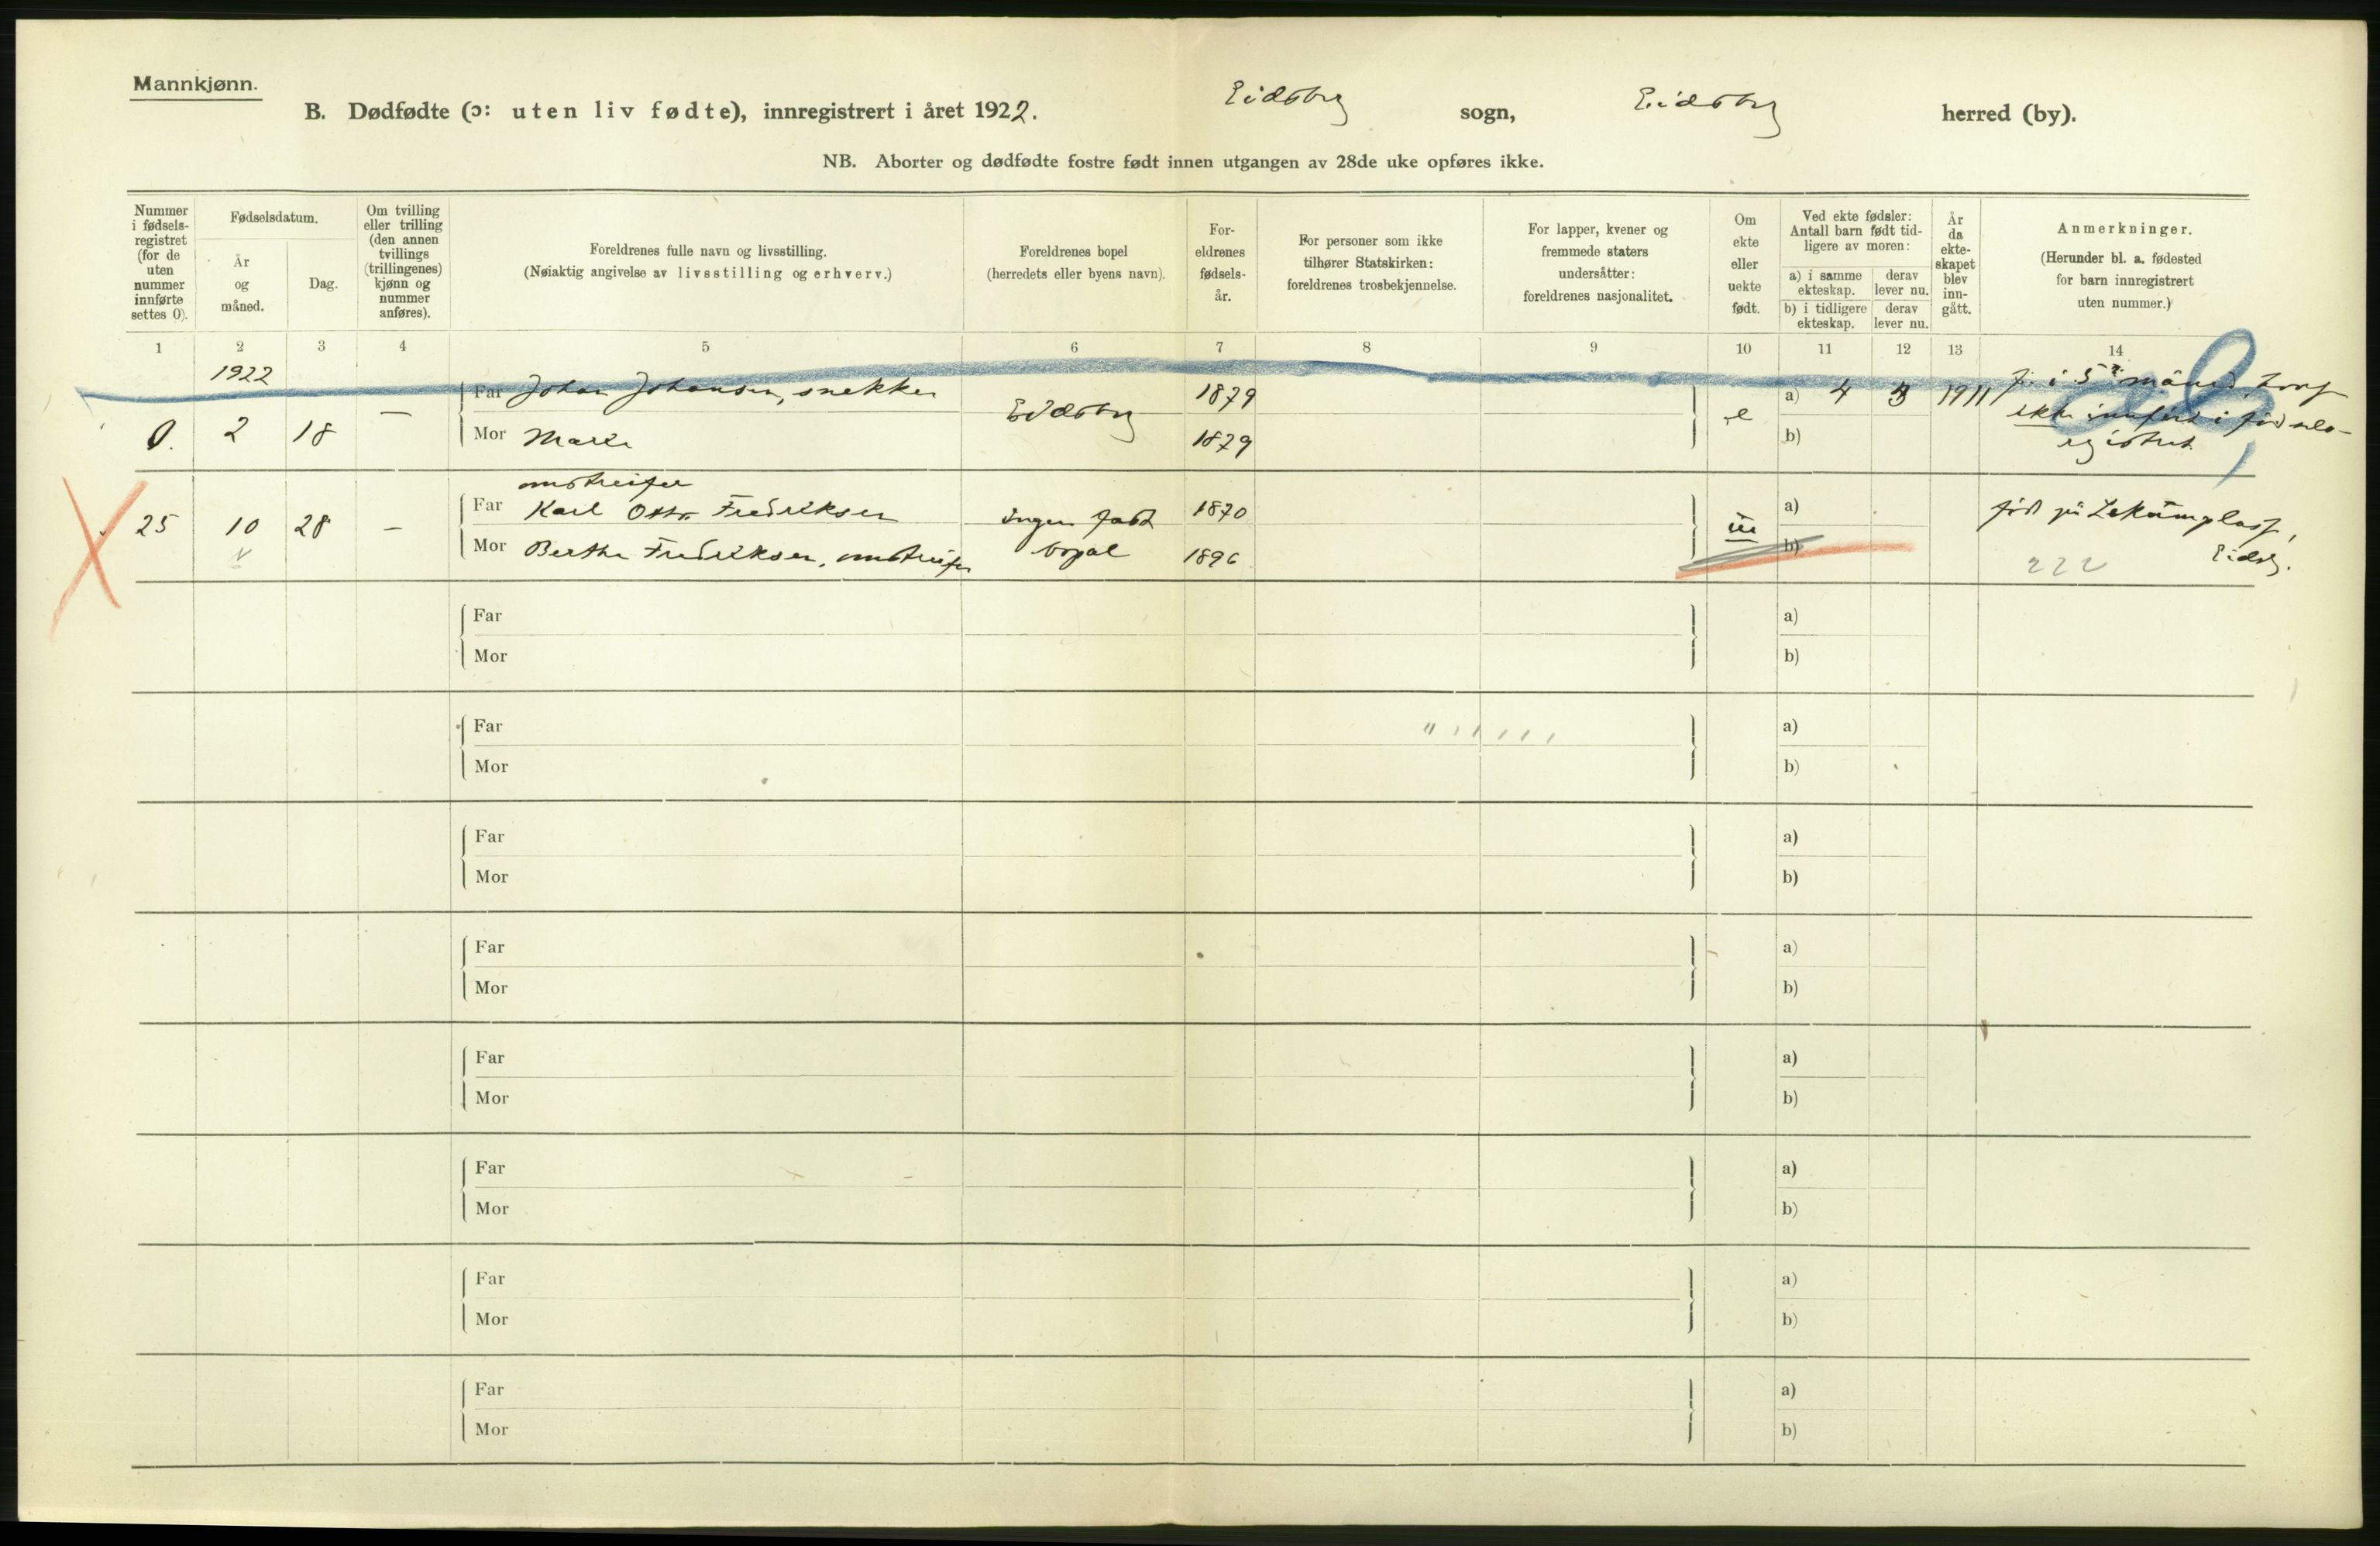 Mannkjønn.
B. Dødfødte (ɔ: uten liv fødte), innregistrert i året 1922. Eidsberg sogn, Eidsberg herred (by).
NB. Aborter og dødfødte fostre født innen utgangen av 28de uke opføres ikke.
Nummer i fødselsregistret (for de uten nummer innførte settes 0).
Fødselsdatum.
År og måned.
Dag.
Om tvilling eller trilling (den annen tvillings (trillingenes) kjønn og nummer anføres).
Foreldrenes fulle navn og livsstilling.
(Nøiaktig angivelse av livsstilling og erhverv.)
Foreldrenes bopel
(herredets eller byens navn).
Foreldrenes fødselsår.
For personer som ikke tilhører Statskirken: foreldrenes trosbekjennelse.
For lapper, kvener og fremmede staters undersåtter: foreldrenes nasjonalitet.
Om ekte eller uekte født.
Ved ekte fødsler: Antall barn født tidligere av moren:
a) i samme ekteskap. derav lever nu.
b) i tidligere ekteskap. derav lever nu.
År da ekteskapet blev inngått.
Anmerkninger.
(Herunder bl. a. fødested for barn innregistrert uten nummer.)
1 2 3 4 5 6 7 8 9 10 11 12 13 14
1922
Far Johan Johansen, snekker 1879 a) 4 3 1911 i 5te måned,
0. 2 18 — Eidsberg e ikke innført i fødsels-
Mor Marie 1879 b) registret
omstreifer
Far Karl Otto Fredriksen ingen fast 1870 a) født på Lekumplass,
25 10 28 — ue
Mor Berthe Fredriksen, omstreifer bopæl 1896 b) 222 Eidsb.
Far a)
Mor b)
Far a)
Mor b)
Far a)
Mor b)
Far a)
Mor b)
Far a)
Mor b)
Far a)
Mor b)
Far a)
Mor b)
Far a)
Mor b)